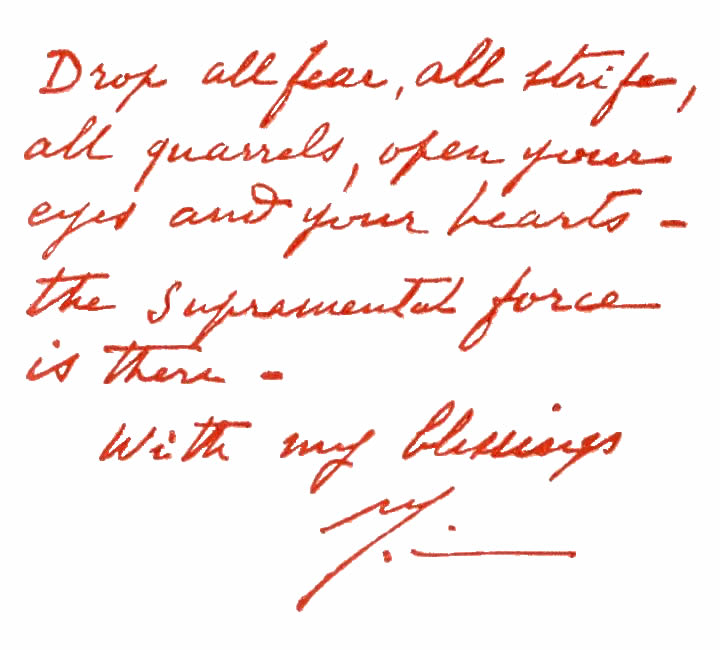 Drop all fear, all strife,
all quarrels, open your
eyes and your hearts –
the Supramental force
is there –
With my blessings